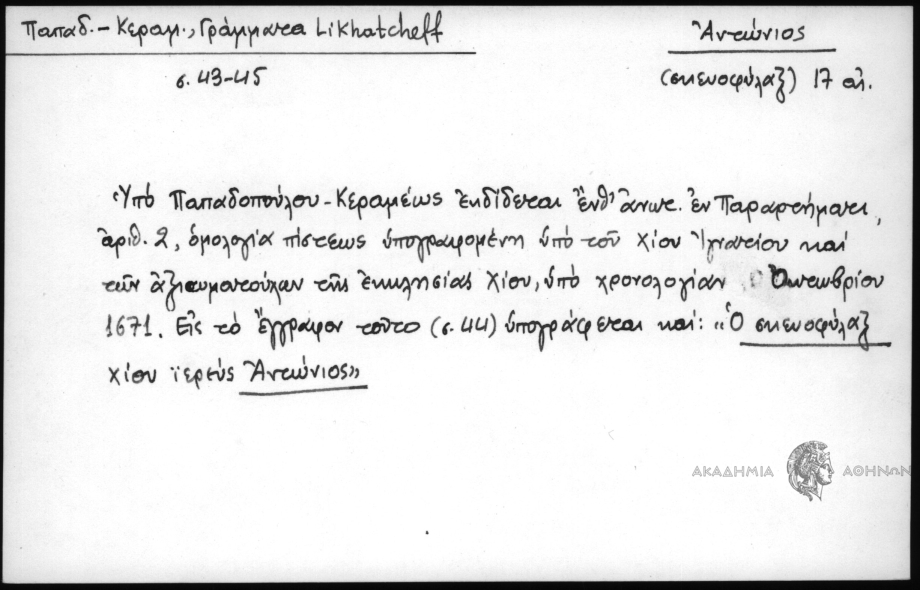 Παπαδ. - Κεραμ., Γράμματα Likhatcheff
Ἀντώνιος
σ. 43-45
(σκευοφύλαξ) 17 αἰ.
Ὑπό Παπαδοπούλου - Κεραμέως ἐκδίδεται ἔνθ' ἄνωτ. ἐν Παραρτήματι,
ἀριθ. 2, ὁμολογία πίστεως ὑπογραφομένη ὑπό τοῦ Χίου Ἰγνατίου καί
τῶν ἀξιωματούχων τῆς ἐκκλησίας Χίου, ὑπό χρονολογίαν Ὀκτωβρίου
1671. Εἰς τό ἔγγραφον τοῦτο (σ. 44) ὑπογράφεται καί: «Ὁ σκευοφύλαξ
Χίου ἱερεύς Ἀντώνιος»
ΑΚΑΔΗΜΙΑ ΑΘΗΝΩΝ